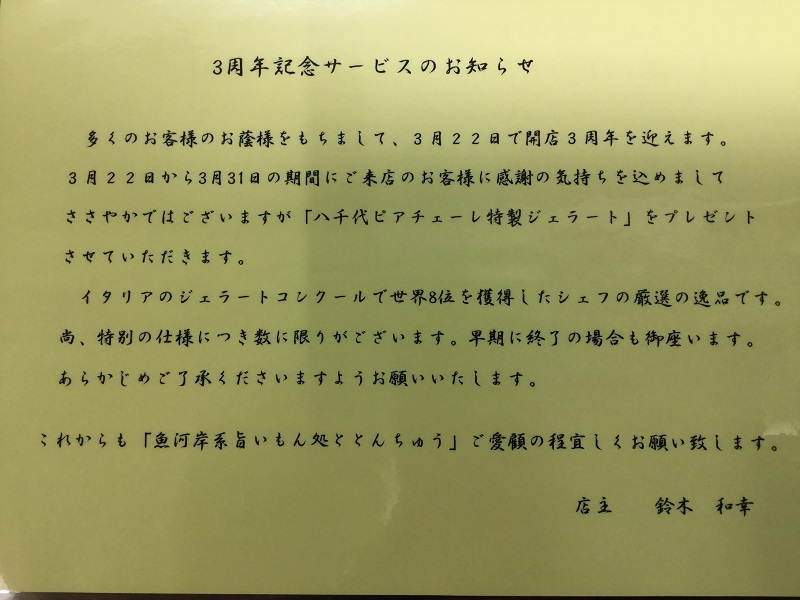 3周年記念サービスのお知らせ
多くのお客様のお蔭様をもちまして、３月２２日で開店３周年を迎えます。
３月２２日から3月31日の期間にご来店のお客様に感謝の気持ちを込めまして
ささやかではございますが「八千代ピアチェーレ特製ジェラート」をプレゼント
させていただきます。
イタリアのジェラートコンクールで世界8位を獲得したシェフの厳選の逸品です。
尚、特別の仕様につき数に限りがございます。早期に終了の場合も御座います。
あらかじめご了承くださいますようお願いいたします。
これからも「魚河岸系旨いもん処ととんちゅう」ご愛顧の程宜しくお願い致します。
店主　鈴木　和幸